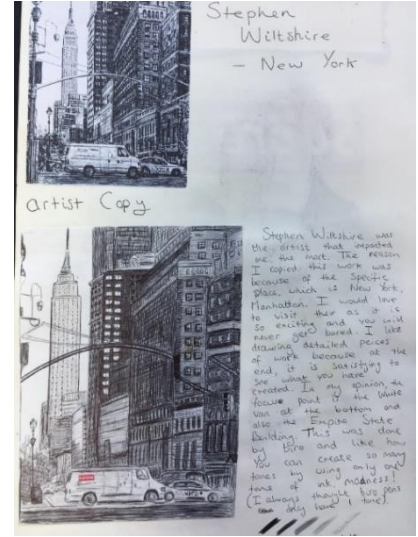 Stephen
Wiltshire
- New York
artist Copy
Stephen Wiltshire was
the artist that impacted
me the most. The reason
I copied this work was
because of the Specific
place, which is New York,
Manhatton. I would love
to visit ther as it is
so exciting and you will
never get bored. I like
drawing detailed peices
of work because at the
end, it is satisfying to
see what you have
created. In my opinion, the
focus point is the white
van at the bottom and
also the Empire State
Building. This was done
by biro and like how
you can create so many
tones by using only one
tone of ink, madness!
(I always thought biro pens
only have 1 tone).